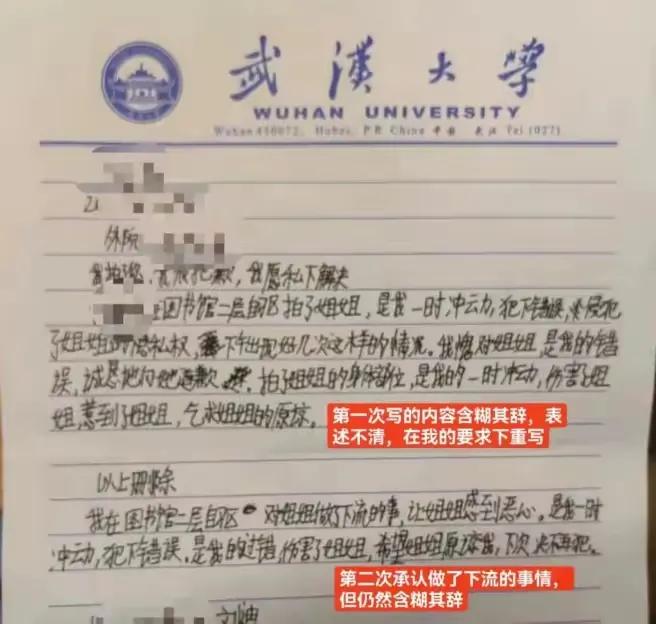 武漢大學
WUHAN UNIVERSITY
Wuhan 430072, Hubei, P.R. China 中国 武汉 Tel (027)
外院
我愿私下解决
图书馆二层自习区拍了姐姐,是我一时冲动,犯下错误,侵犯
了姐姐的隐私权,出现好几次这样的情况。我愧对姐姐,是我的错
误,诚恳地向她道歉,拍了姐姐的身体部位,是我的一时冲动,伤害了姐
姐,惹到了姐姐,乞求姐姐的原谅。
第一次写的内容含糊其辞,表
述不清,在我的要求下重写
以上删除
我在图书馆二层自习区 对姐姐做了下流的事,让姐姐感到恶心。是我一时
冲动,犯下错误。是我的过错,伤害了姐姐,希望姐姐原谅我,下次决不再犯。
第二次承认做了下流的事情,
但仍然含糊其辞